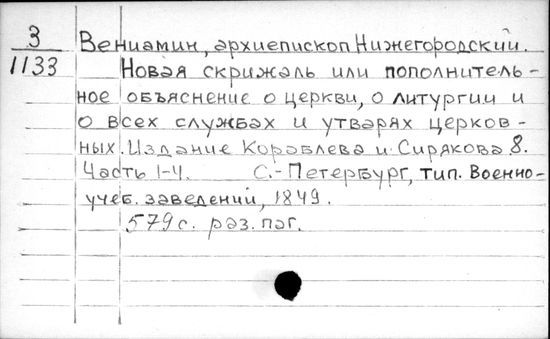 З
1133
Вениамин, архиепископ Нижегородский.
Новая скрижаль или пополнитель-
ное объяснение о церкви, о литургии и
о всех службах и утварях церков-
ных. Издание Кораблева и Сирякова 8.
Часть 1-4. С.-Петербург, тип. Военно-
учеб. заведений, 1849.
579 с. раз. паг.